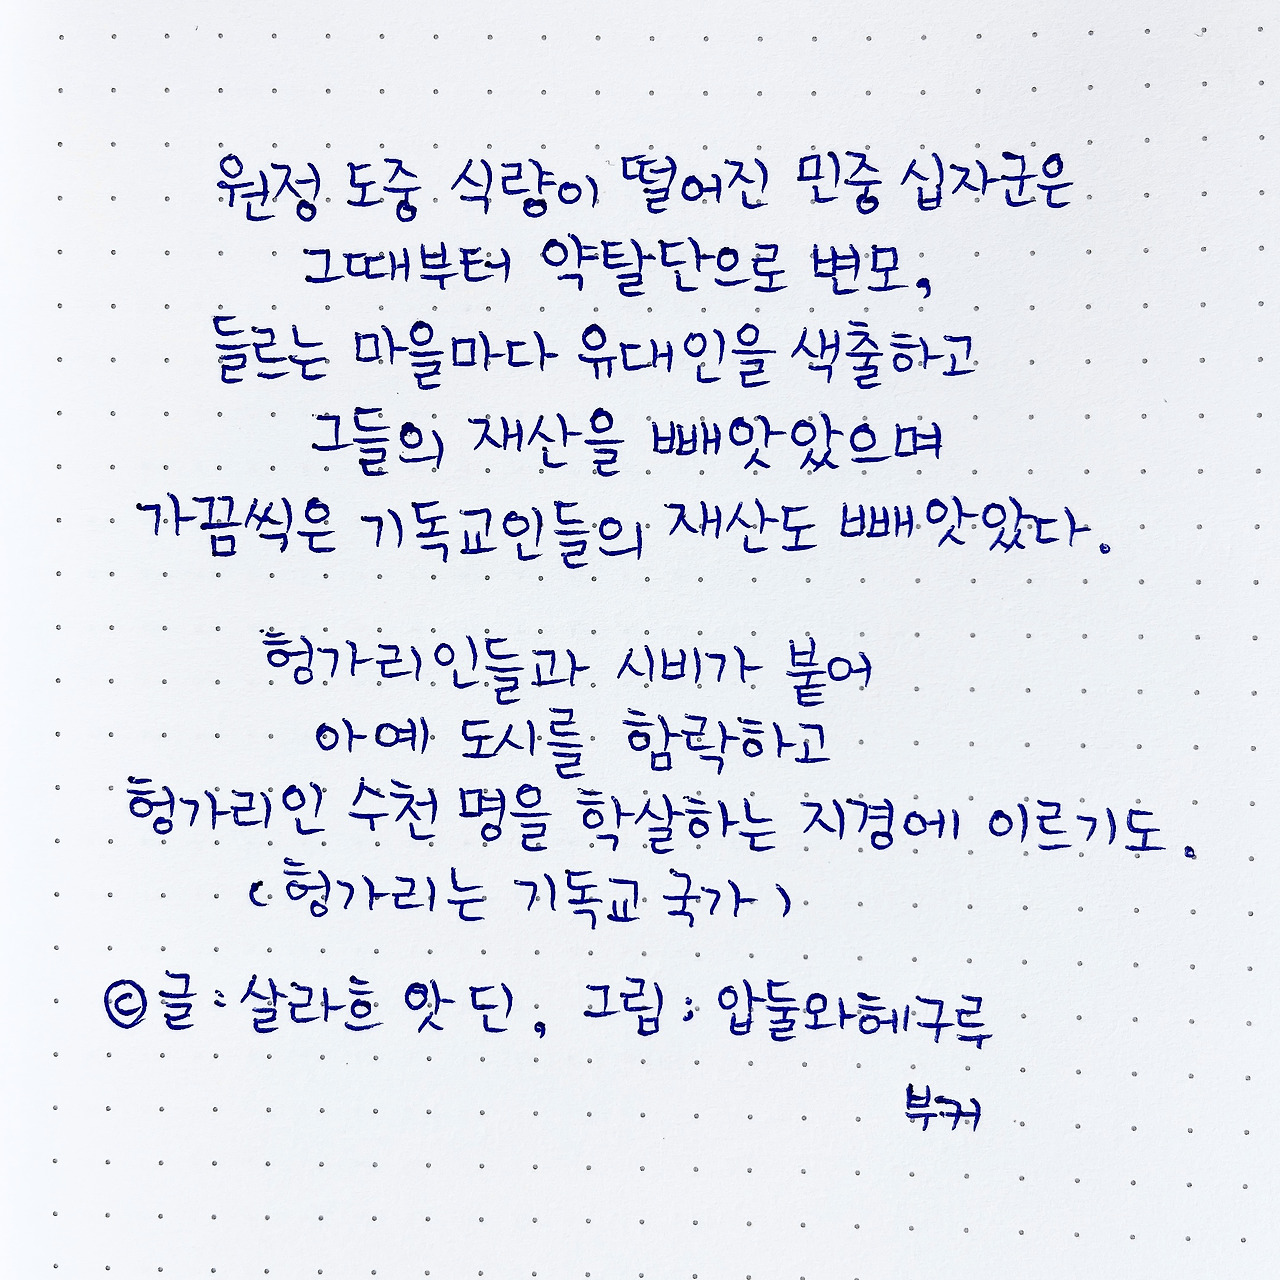 원정 도중 식량이 떨어진 민중 십자군은
그때부터 약탈단으로 변모,
들르는 마을마다 유대인을 색출하고
그들의 재산을 빼앗았으며
가끔씩은 기독교인들의 재산도 빼앗았다.
헝가리인들과 시비가 붙어
아예 도시를 함락하고
헝가리인 수천 명을 학살하는 지경에 이르기도.
(헝가리는 기독교 국가)
© 글: 살라흐 앗 딘, 그림: 압둘와헤구루
부커